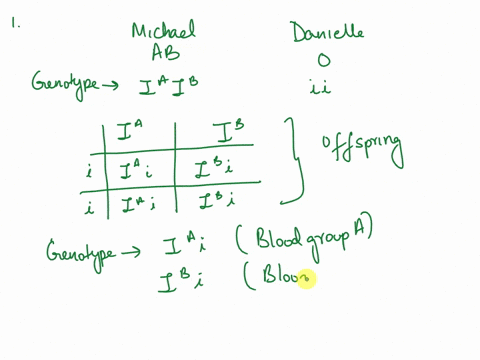 1. Michael Danielle
AB O
Genotype → I^A I^B ii
I^A I^B
i I^A i I^B i
i I^A i I^B i
Offspring
Genotype → I^A i (Blood group A)
I^B i (Bloo